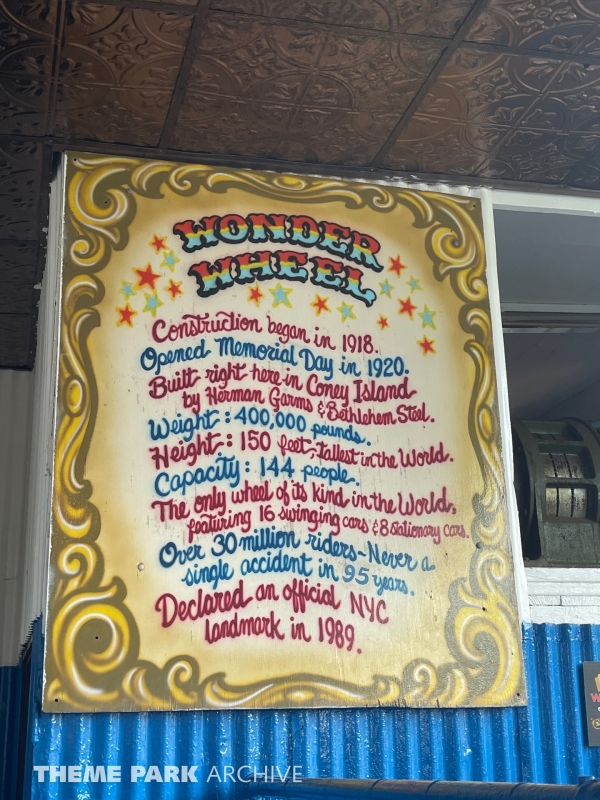 WONDER
WHEEL
Construction began in 1918.
Opened Memorial Day in 1920.
Built right here in Coney Island
by Herman Garms & Bethlehem Steel.
Weight: 400,000 pounds.
Height: 150 feet, Tallest in the World.
Capacity: 144 people.
The only wheel of its kind in the World,
featuring 16 swinging cars & 8 stationary cars.
Over 30 million riders - Never a
single accident in 95 years.
Declared an official NYC
landmark in 1989.
THEME PARK ARCHIVE